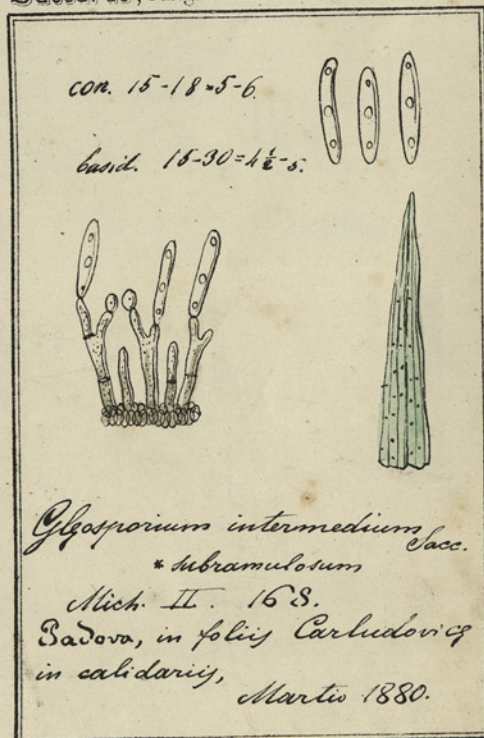 con. 15-18=5-6.
basid. 15-30=4½-5.
Glœosporium intermedium Sacc.
* subramulosum
Mich. II. 168.
Padova, in foliis Carludovicæ
in calidariis,
Martio 1880.